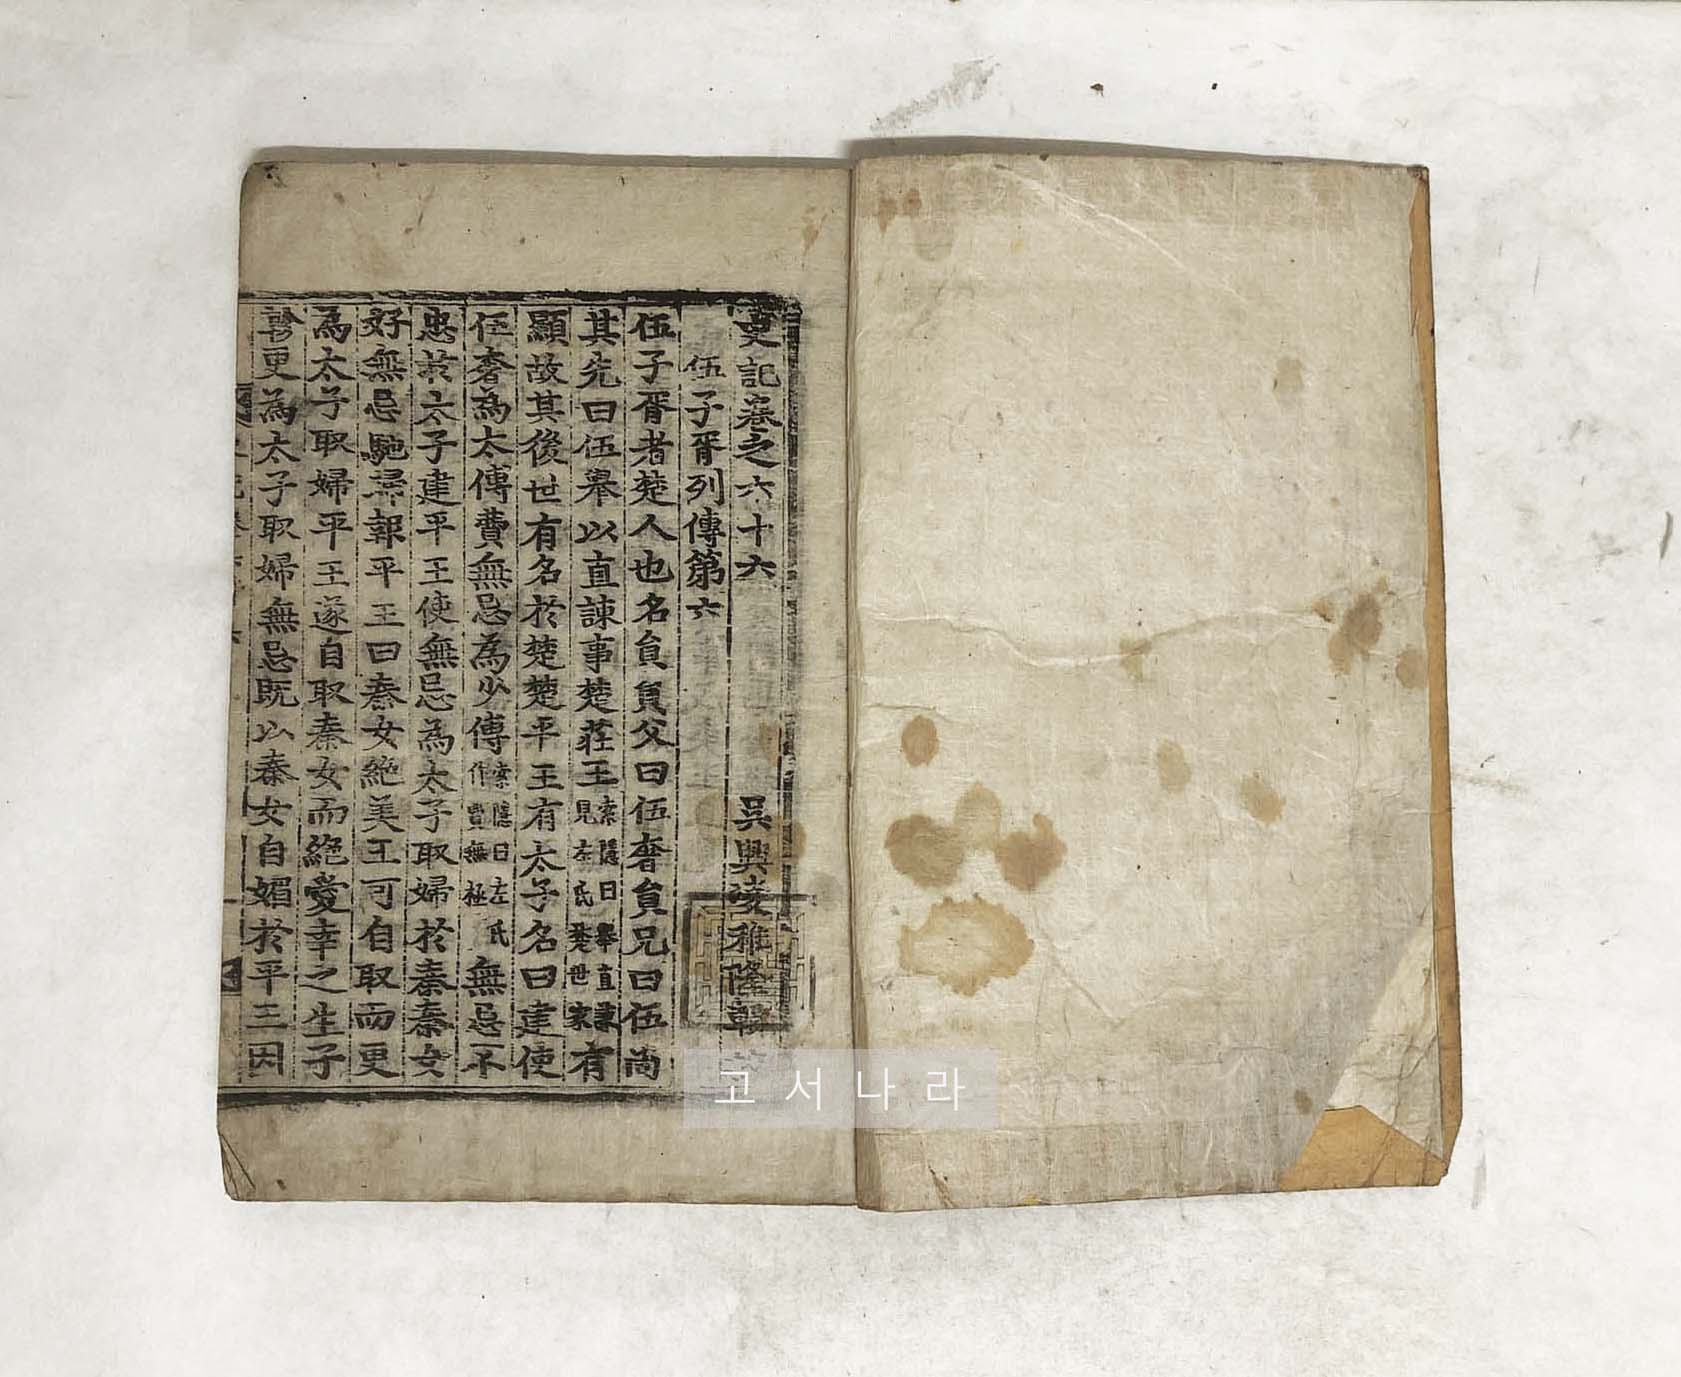 史記卷之六十六 吳興凌稚隆輯
伍子胥列傳第六
伍子胥者楚人也名員員父曰伍奢員兄曰伍尚
其先曰伍舉以直諫事楚莊王索隱曰舉直諫見左氏楚世家有
顯故其後世有名於楚楚平王有太子名曰建使
伍奢為太傅費無忌為少傅索隱曰左氏作費無極無忌不
忠於太子建平王使無忌為太子取婦於秦秦女
好無忌馳歸報平王曰秦女絶美王可自取而更
為太子取婦平王遂自取秦女而絶愛幸之生子
更為太子取婦無忌既以秦女自媚於平王因
고서나라